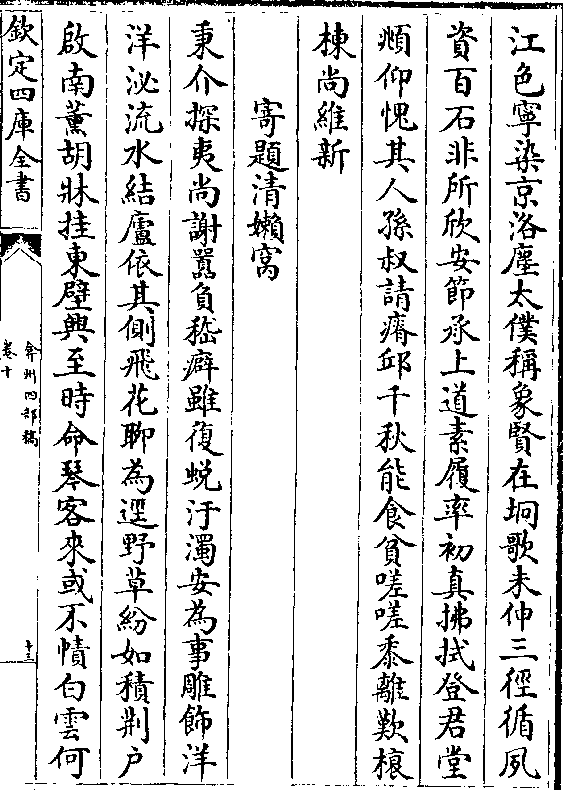 江色寧染京洛塵太僕稱象賢在坰歌未伸三徑循夙
資百石非所欣安節承上道素履率初真拂拭登君堂
頫仰愧其人孫叔請瘠邱千秋能食貧嗟嗟黍離歎榱
棟尚維新
寄題清嬾窩
秉介探夷尚謝囂負嵇癖雖復蛻汙濁安為事雕飾洋
洋泌流水結廬依其側飛花聊為逕野草紛如積荆户
啟南薫胡牀挂東壁興至時命琴客來或不幘白雲何
欽定四庫全書
弇州四部稿
卷十
十三